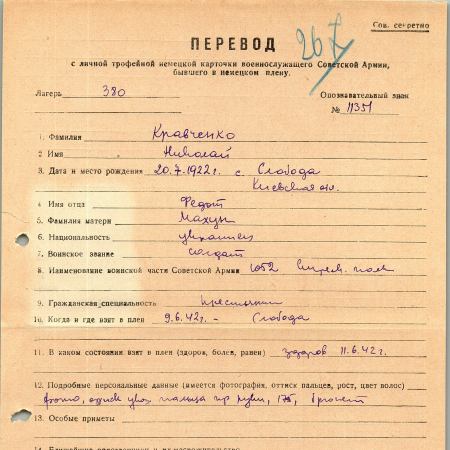 Сов. секретно
ПЕРЕВОД
267
с личной трофейной немецкой карточки военнослужащего Советской Армии,
бывшего в немецком плену.
Лагерь 380 Опознавательный знак
№ 11351
1. Фамилия Кравченко
2 Имя Николай
3. Дата и место рождения 20.7.1922г. с. Слобода
Киевская обл.
4 Имя отца Федот
5. Фамилия матери Махун
6. Национальность украинец
7. Воинское звание солдат
8 Наименование воинской части Советской Армии 1052 Стрелк. полк
9. Гражданская специальность крестьянин
10. Когда и где взят в плен 9.6.42г. - Слобода
11. В каком состоянии взят в плен (здоров, болен, ранен) здоров 11.6.42г.
12. Подробные персональные данные (имеется фотография, оттиск пальцев, рост, цвет волос)
фото, оттиск указ. пальца пр. руки, 175, брюнет
13. Особые приметы